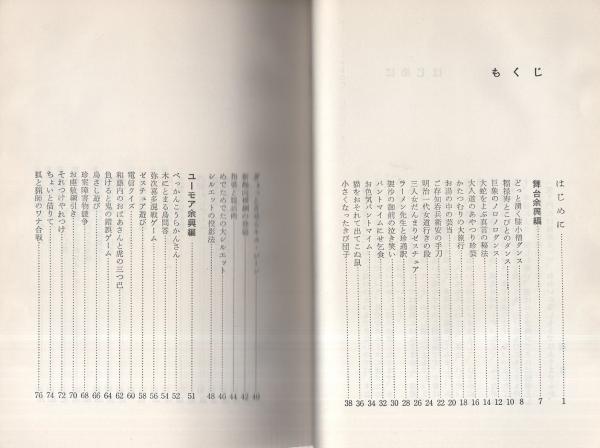 もくじ
はじめに……1
舞台余興編……7
どっと湧く豆小僧ダンス……8
相撲寿とこびとのダンス……10
巨象のノロノロダンス……12
大蛇をよぶ真言の秘法……14
大人道のあやつり珍芸……16
かたつむりの大旅行……18
お湯の中の芸当……20
ご存知呑兵衛安の手刀……22
明治一代女道行きの段……24
三人女だんまりゼスチュア……26
ラーメン先生と珍通訳……28
袈沙の御前の泣き笑い……30
パントマイムにせ乞食……32
お色気パントマイム……34
猫をおそれて出てこぬ鼠……36
小さくなったきび団子……38
40
42
44
めでためでたのシルエット……46
シルエットの投影法……48
ユーモア余興編……51
べっかんこうらかんさん……52
木にとまる鳥問答……54
弥次喜多混戦ゲーム……56
ゼスチュア遊び……58
電信クイズ……60
和藤内のおばあさんと虎の三つ巴……62
負けると鬼の錯誤ゲーム……64
鳥さし遊び……66
珍案障害物競争……68
お座敷綱引き……70
それつけやれつけ……72
ちょいと借りて……74
狐と猟師のワナ合戦……76